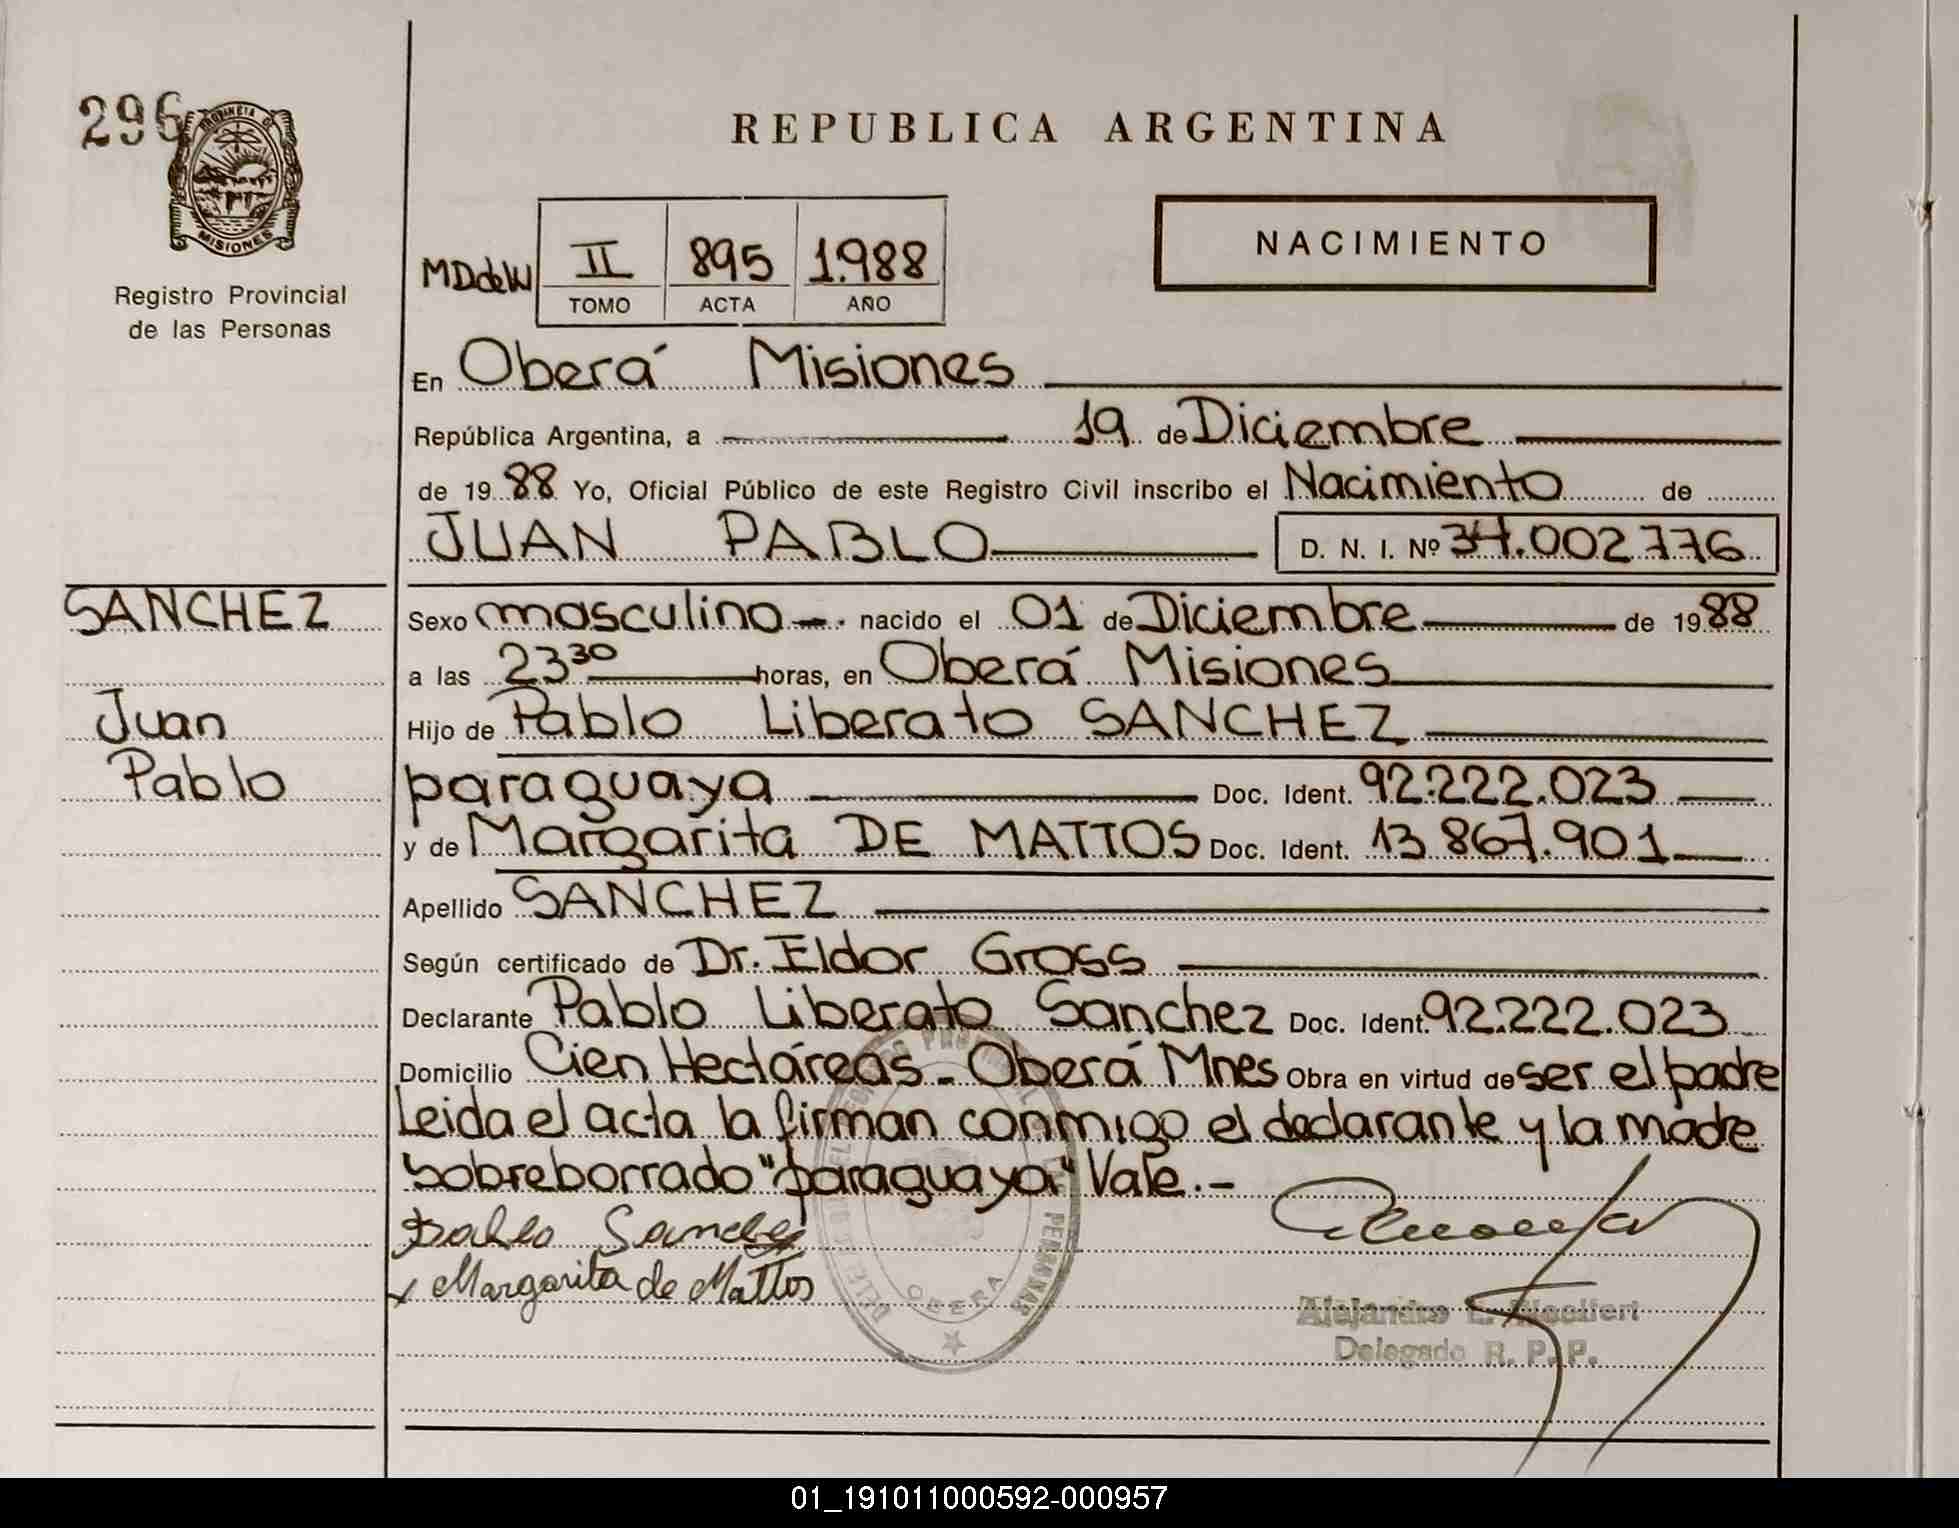 296
PROVINCIA DE
MISIONES
Registro Provincial
de las Personas
REPUBLICA ARGENTINA
NACIMIENTO
MDdeW II 895 1.988
TOMO ACTA AÑO
En Oberá Misiones
República Argentina, a 19 de Diciembre
de 19 88 Yo, Oficial Público de este Registro Civil inscribo el Nacimiento de
JUAN PABLO D. N. I. Nº 34.002.776
SANCHEZ
Juan
Pablo
Sexo masculino nacido el 01 de Diciembre de 19 88
a las 23 30 horas, en Oberá Misiones
Hijo de Pablo Liberato SANCHEZ
paraguaya Doc. Ident. 92.222.023
y de Margarita DE MATTOS Doc. Ident. 13.867.901
Apellido SANCHEZ
Según certificado de Dr. Eldor Gross
Declarante Pablo Liberato Sanchez Doc. Ident. 92.222.023
Domicilio Cien Hectáreas - Oberá Mnes Obra en virtud de ser el padre
Leida el acta la firman conmigo el declarante y la madre
sobreborrado "paraguaya" Vale.-
Pablo Sanchez
x Margarita de Mattos
OBERA
PERSONAS
Alejandro E.
Delegado R. P. P.
01_191011000592-000957